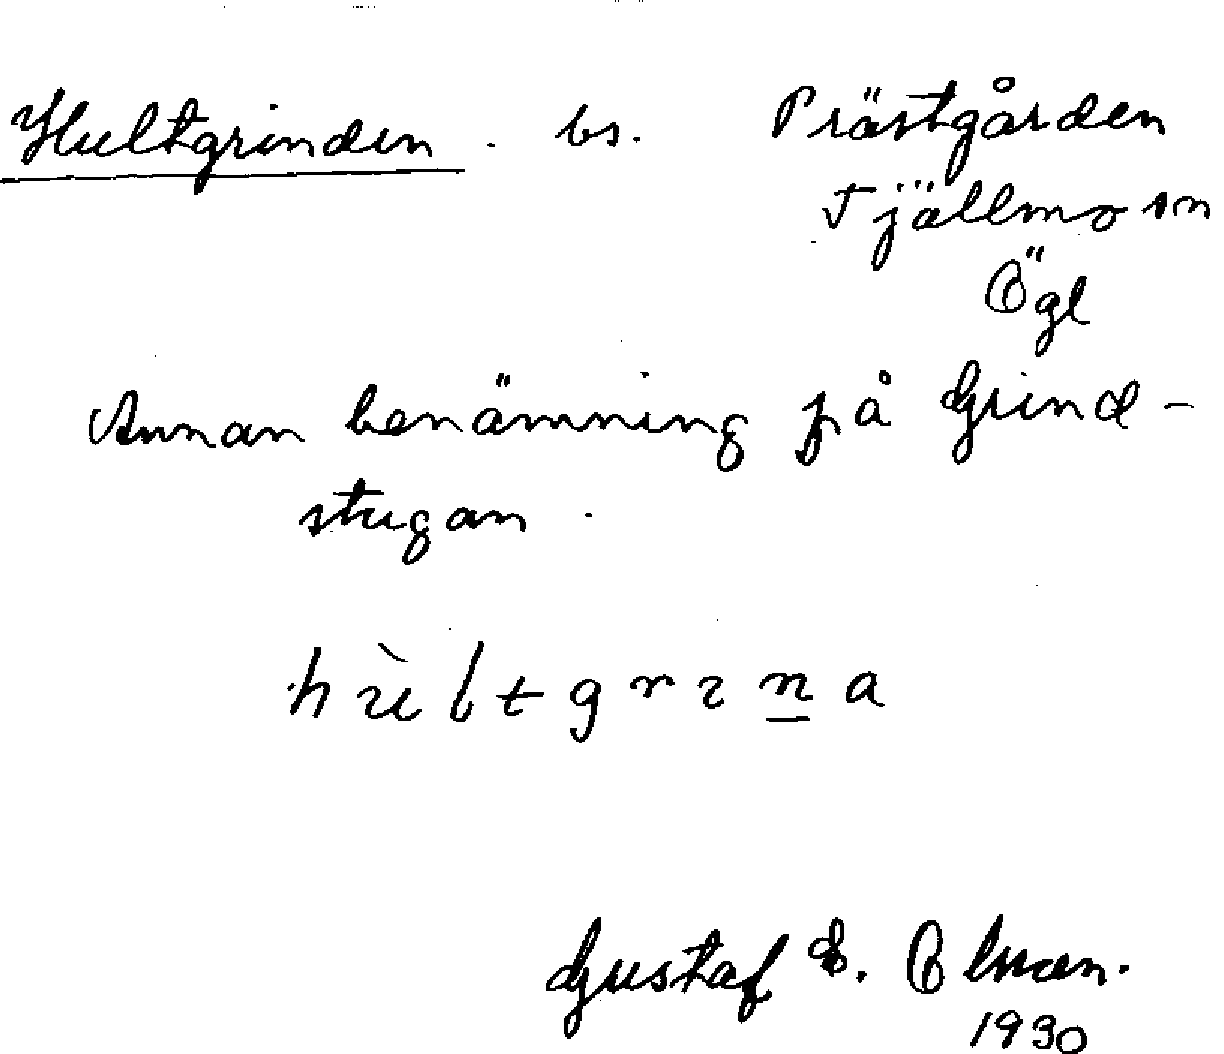 Hultgrinden. bs. Prästgården
Tjällmo sn
Ögl
Annan benämning på Grind-
stugan.
Gustaf E.
1930